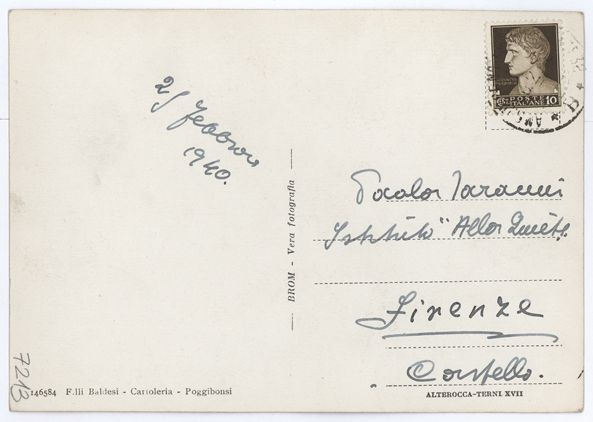 25 Febbraio
1940.
POSTE
ITALIANE 10
BROM - Vera fotografia
Paolo
Istituto "Alla Quiete
Firenze
Castello.
7213
146584 F.lli Baldesi - Cartoleria - Poggibonsi
ALTEROCCA-TERNI XVII